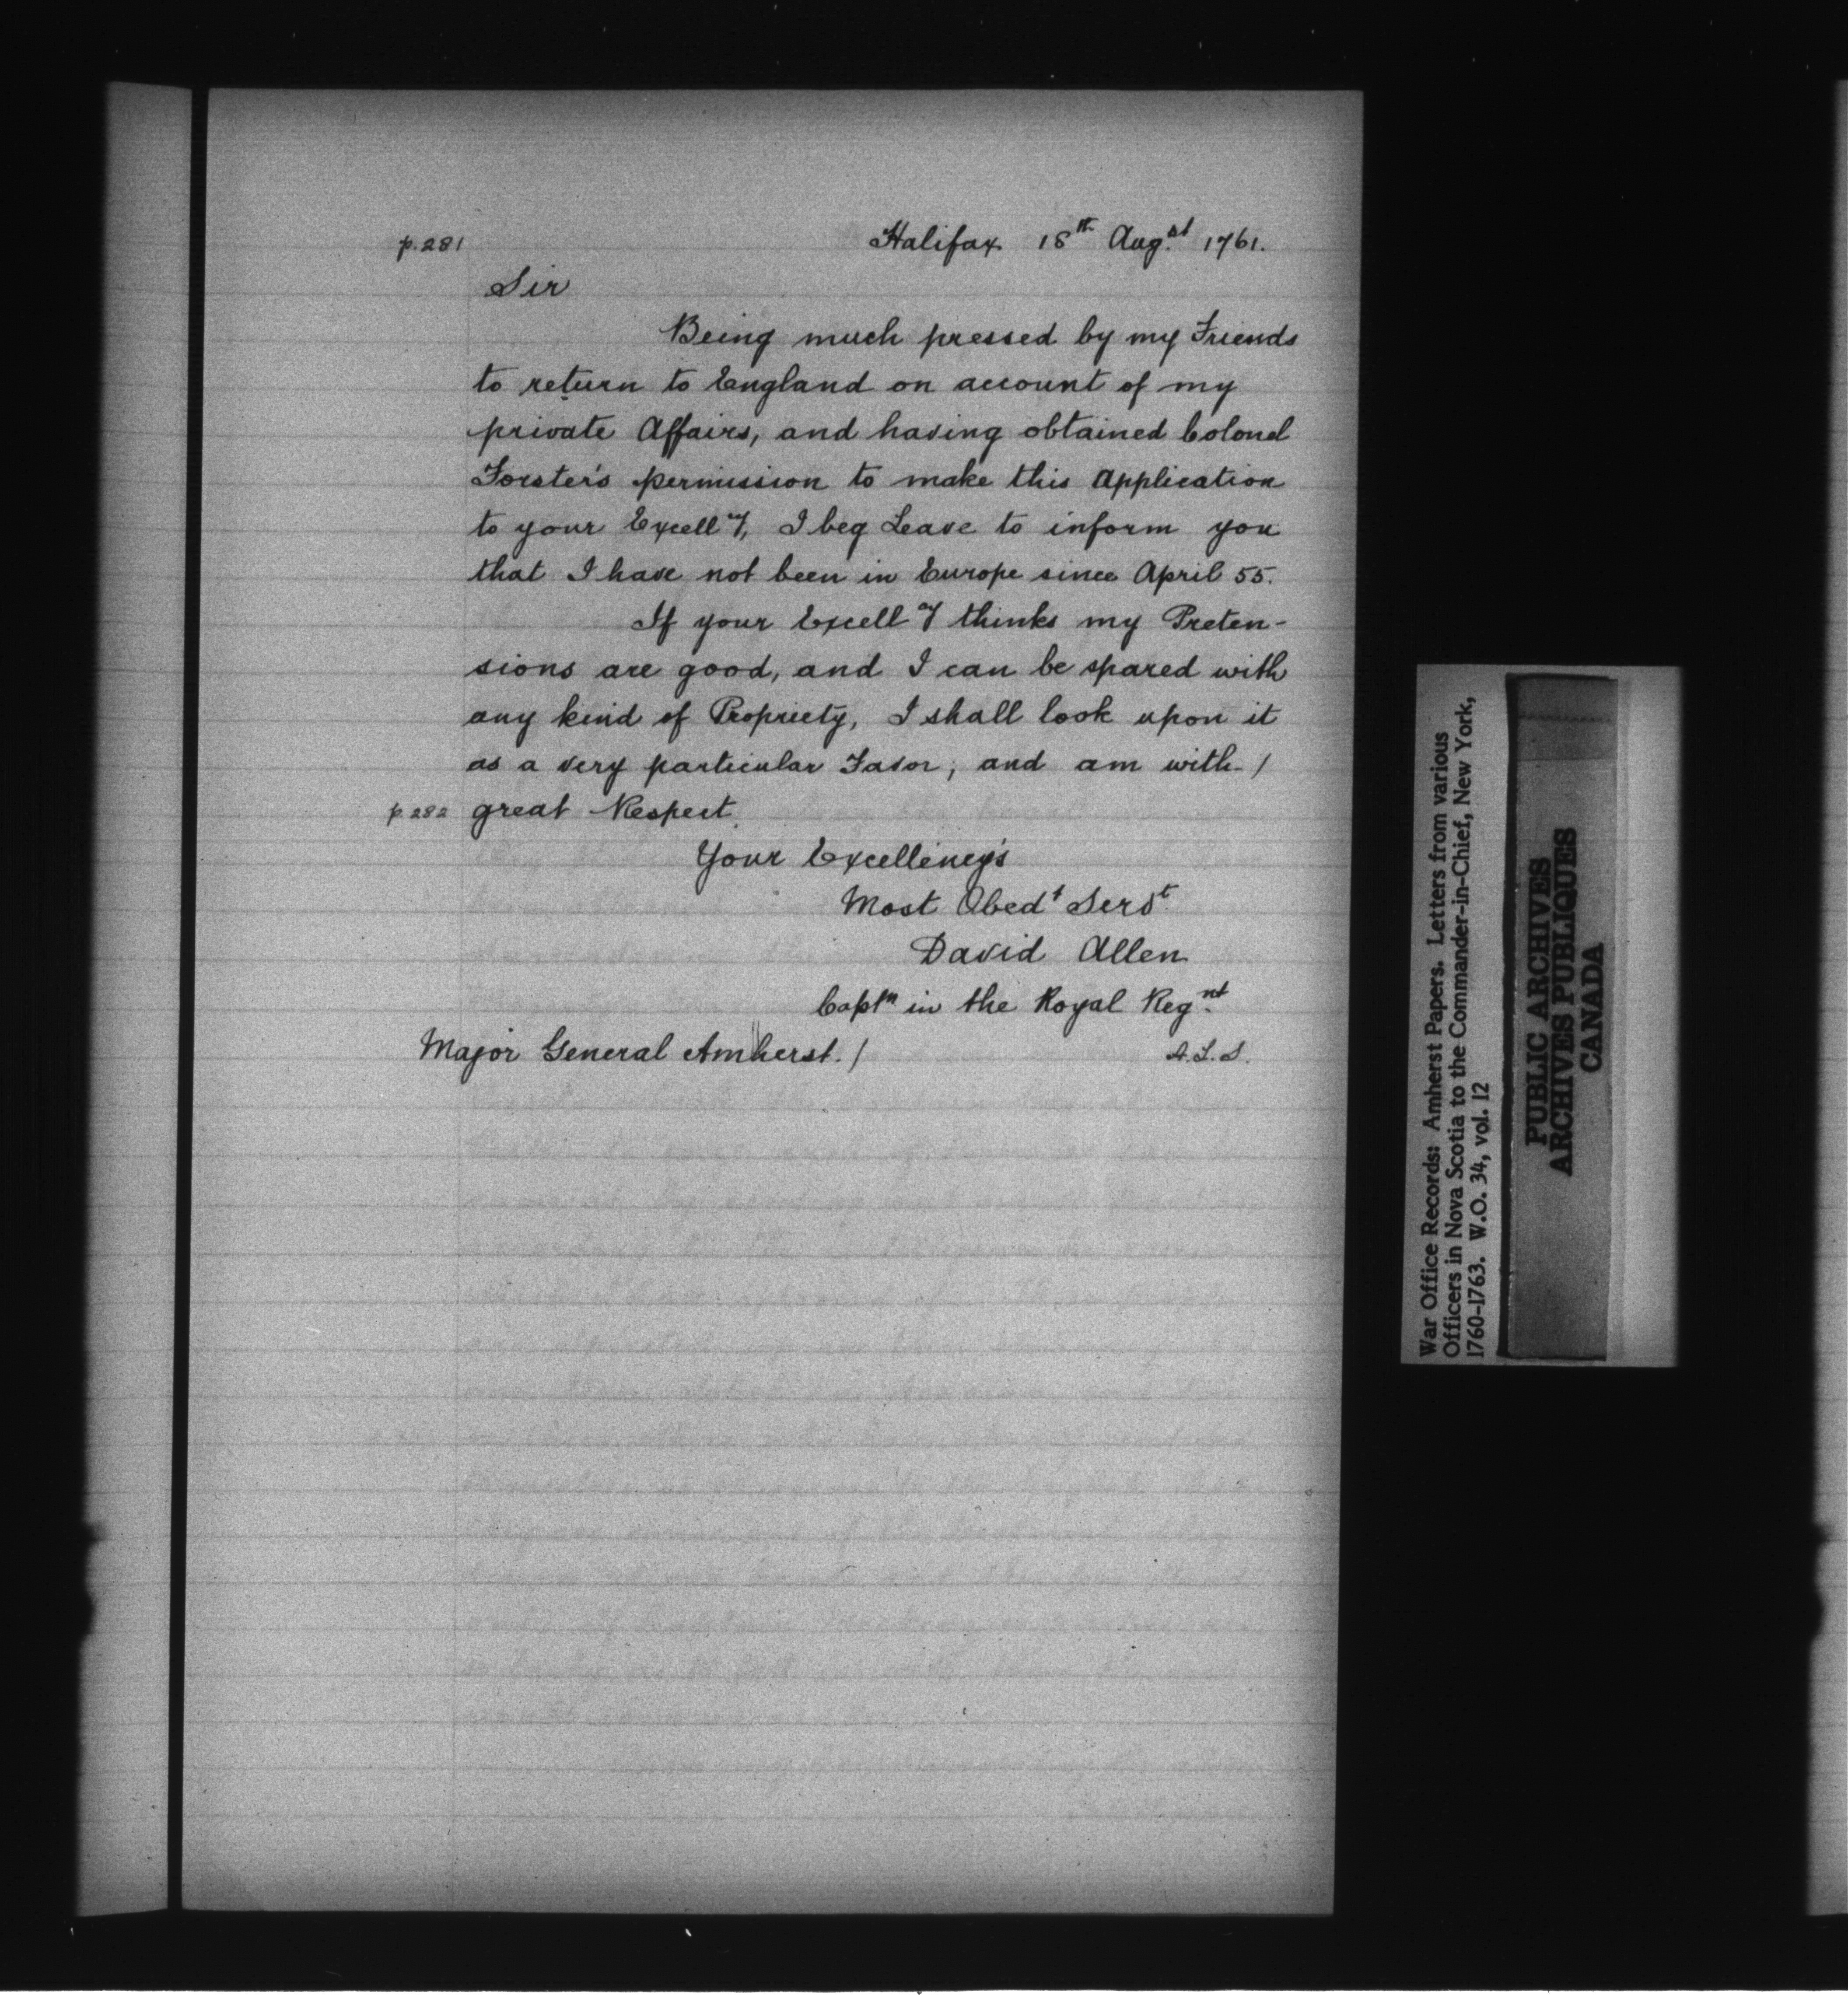 p.281 Halifax 18th Augst 1761.
Sir
Being much pressed by my Friends
to return to England on account of my
private Affairs, and having obtained Colonel
Forster's permission to make this Application
to your Excellcy, I beg Leave to inform you
that I have not been in Europe since April 55.
If your Excellcy thinks my Preten-
sions are good, and I can be spared with
any kind of Propriety, I shall look upon it
as a very particular Favor, and am with /
p.282 great Respect.
Your Excellency's
Most Obedt Servt
David Allen
Captn in the Royal Regnt
Major General Amherst. / A.L.S.
War Office Records: Amherst Papers. Letters from various
Officers in Nova Scotia to the Commander-in-Chief, New York,
1760-1763. W.O. 34, vol. 12
PUBLIC ARCHIVES
ARCHIVES PUBLIQUES
CANADA